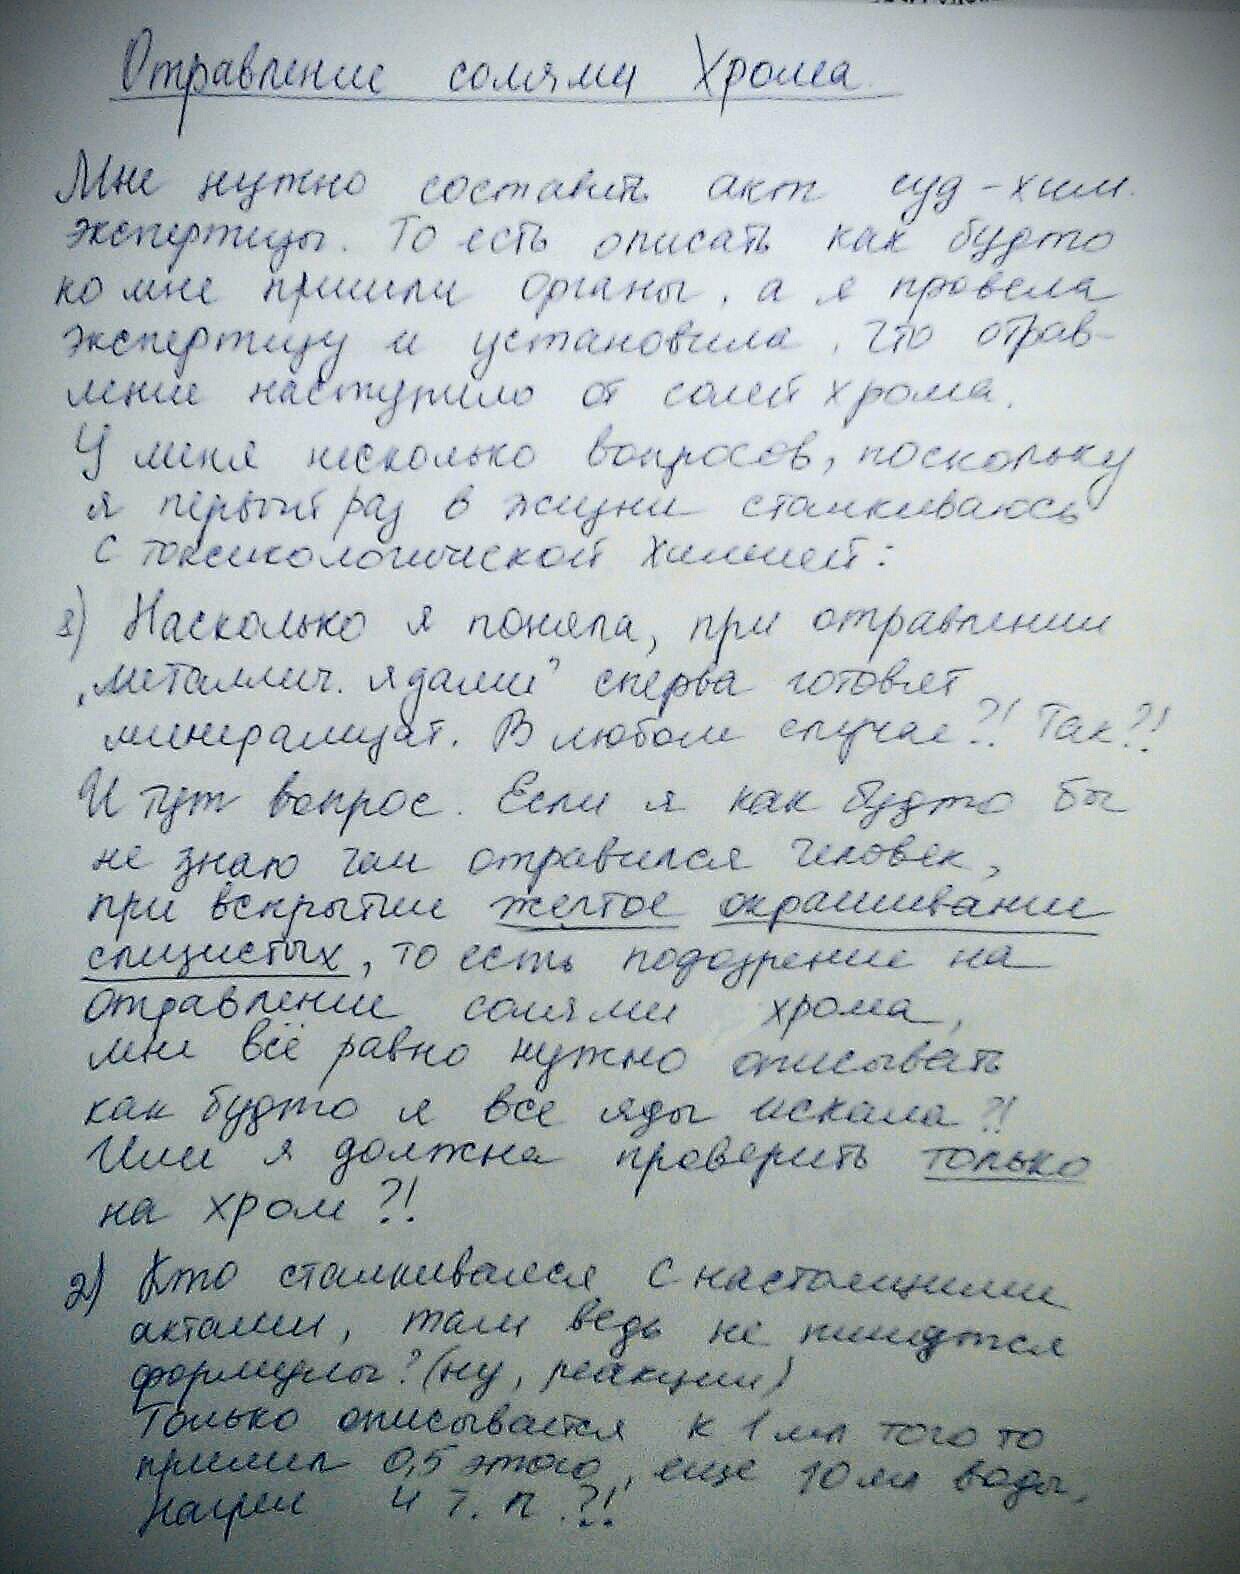 Отравление солями Хрома.
Мне нужно составить акт суд-хим.
экспертизы. То есть описать как будто
ко мне пришли органы, а я провела
экспертизу и установила, что отрав-
ление наступило от солей хрома.
У меня несколько вопросов, поскольку
я первый раз в жизни сталкиваюсь
с токсикологической химией:
1) Насколько я поняла, при отравлении
"металлич. ядами" сперва готовят
минерализат. В любом случае?! Так?!
И тут вопрос. Если я как будто бы
не знаю чем отравился человек,
при вскрытие желтое окрашивание
слизистых, то есть подозрение на
отравление солями хрома,
мне всё равно нужно описывать
как будто я все яды искала?!
Или я должна проверить только
на хром?!
2) Кто сталкивался с настоящими
актами, там ведь не пишутся
формулы? (ну, реакции)
Только описывается к 1 мл того то
прилил 0,5 этого, еще 10 мл воды,
нагрел и т.п.?!